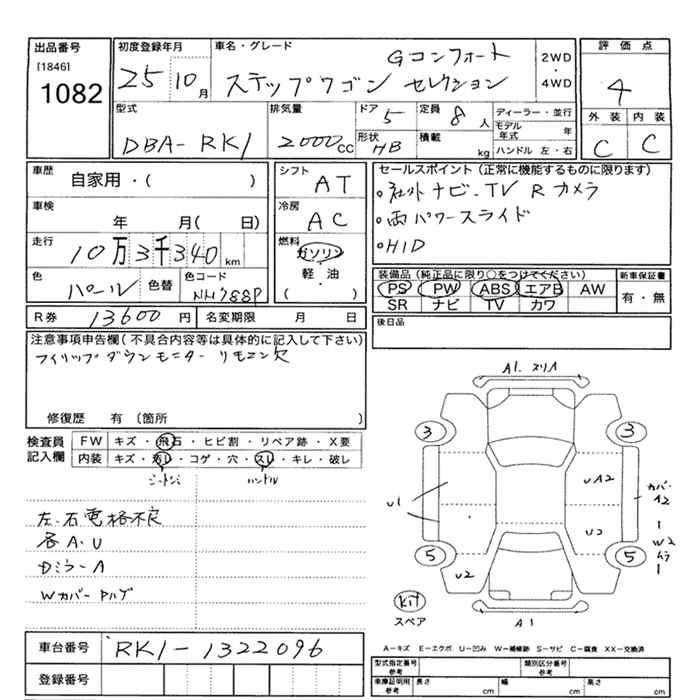 出品番号
[1846]
1082
初度登録年月
25 10月
車名・グレード
Gコンフォート
ステップワゴン セレクション
2WD
・
4WD
評価点
4
型式
DBA-RK1
排気量
2000cc
ドア 5
形状 HB
定員 8人
積載 kg
ディーラー・並行
モデル年式 年
ハンドル 左・右
外装 内装
C C
車歴
自家用・( )
シフト
AT
車検
年 月( 日)
冷房
AC
走行
10万3千340km
燃料
ガソリン
・
軽・油
( )
色
パール
色替
色コード
NH788P
R券 13600円
名変期限 月 日
セールスポイント(正常に機能するものに限ります)
○社外ナビ・TV Rカメラ
○両パワースライド
○HID
装備品(純正品に限り○をつけてください)
PS PW ABS エアB AW
SR ナビ TV カワ
新車保証書
有・無
後日品
注意事項申告欄(不具合内容等は具体的に記入して下さい)
フィリップダウンモニター リモコン欠
修復歴 有 〔箇所 〕
検査員記入欄
FW キズ・飛石・ヒビ割・リペア跡・X要
内装 キズ・汚レ・コゲ・穴・スレ・キレ・破レ
ハンドル
左、右電格不良
各A・U
Dミラー A
Wカバー
A1. スリA
3 3
U1
UA2
カバーA2
W2
5 5
U2
Kit
スペア
A1
車台番号 RK1-1322096
登録番号
A－キズ E－エクボ U－凹み W－補修跡 S－サビ C－腐食 XX－交換済
型式指定番号 参考
類別区分番号 参考
車庫証明用 参考 長さ cm 幅 cm 高さ cm